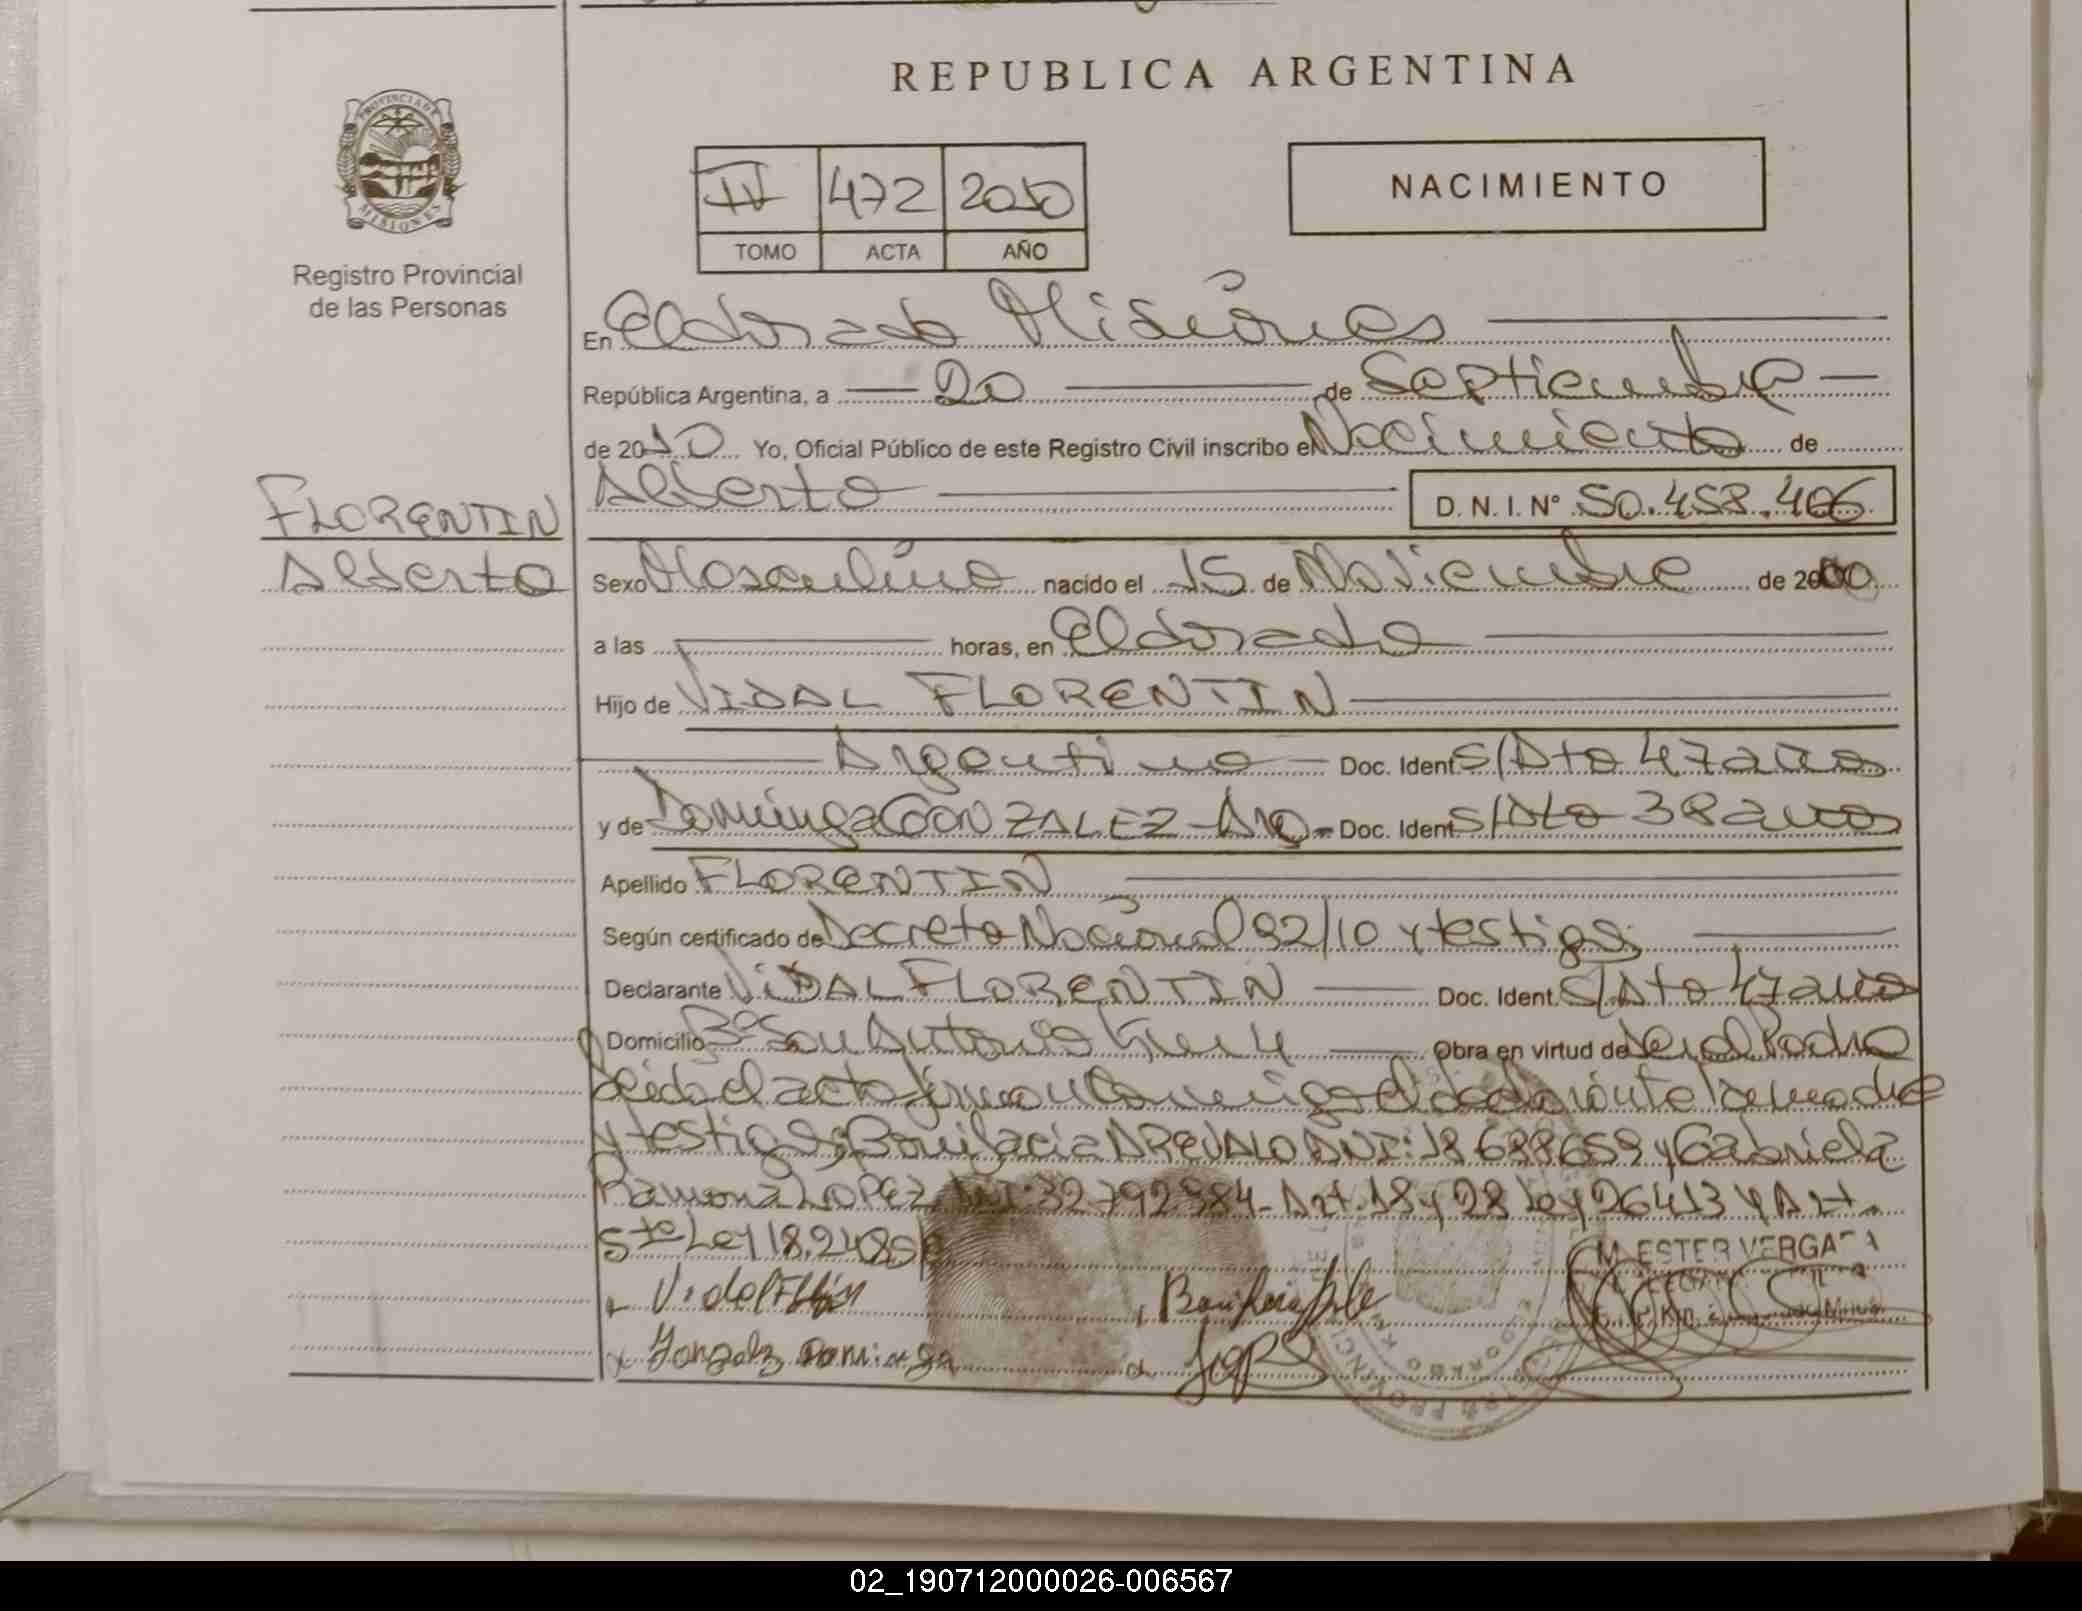 REPUBLICA ARGENTINA
PROVINCIA DE MISIONES
Registro Provincial
de las Personas
IV 472 2010
TOMO ACTA AÑO
NACIMIENTO
En Eldorado Misiones
República Argentina, a 20 de Septiembre
de 2010 Yo, Oficial Público de este Registro Civil inscribo el Nacimiento de
Alberto D. N. I. Nº 50.458.406
FLORENTIN
Alberto
Sexo Masculino nacido el 15 de Noviembre de 2000
a las horas, en Eldorado
Hijo de VIDAL FLORENTIN
Argentino Doc. Ident. S/Dto 47 años
y de Dominga GONZALEZ - Arg - Doc. Ident. S/Dto 38 años
Apellido FLORENTIN
Según certificado de Decreto Nacional 92/10 y testigos
Declarante VIDAL FLORENTIN Doc. Ident. S/Dto 47 años
Domicilio Bº San Antonio Km 4 Obra en virtud de ser el Padre
Leída el acta firman conmigo el declarante la madre
y testigos Bonifacia AREVALO DNI: 18688659 y Gabriela
Ramona LOPEZ DNI: 32792984 - Art. 18 y 28 Ley 26413 y Art.
5to Ley 18.248
Vidal
Gonzalz Dominga
M. ESTER VERGARA
02_190712000026-006567